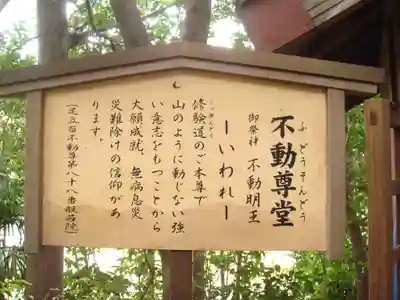 不動尊堂
ふどうそんどう
御祭神 不動明王
―いわれ―
修験道のご本尊で
しゅげんどう
山のように動じない強
い意志をもつことから
大願成就、無病息災
災難除けの信仰があ
ります。